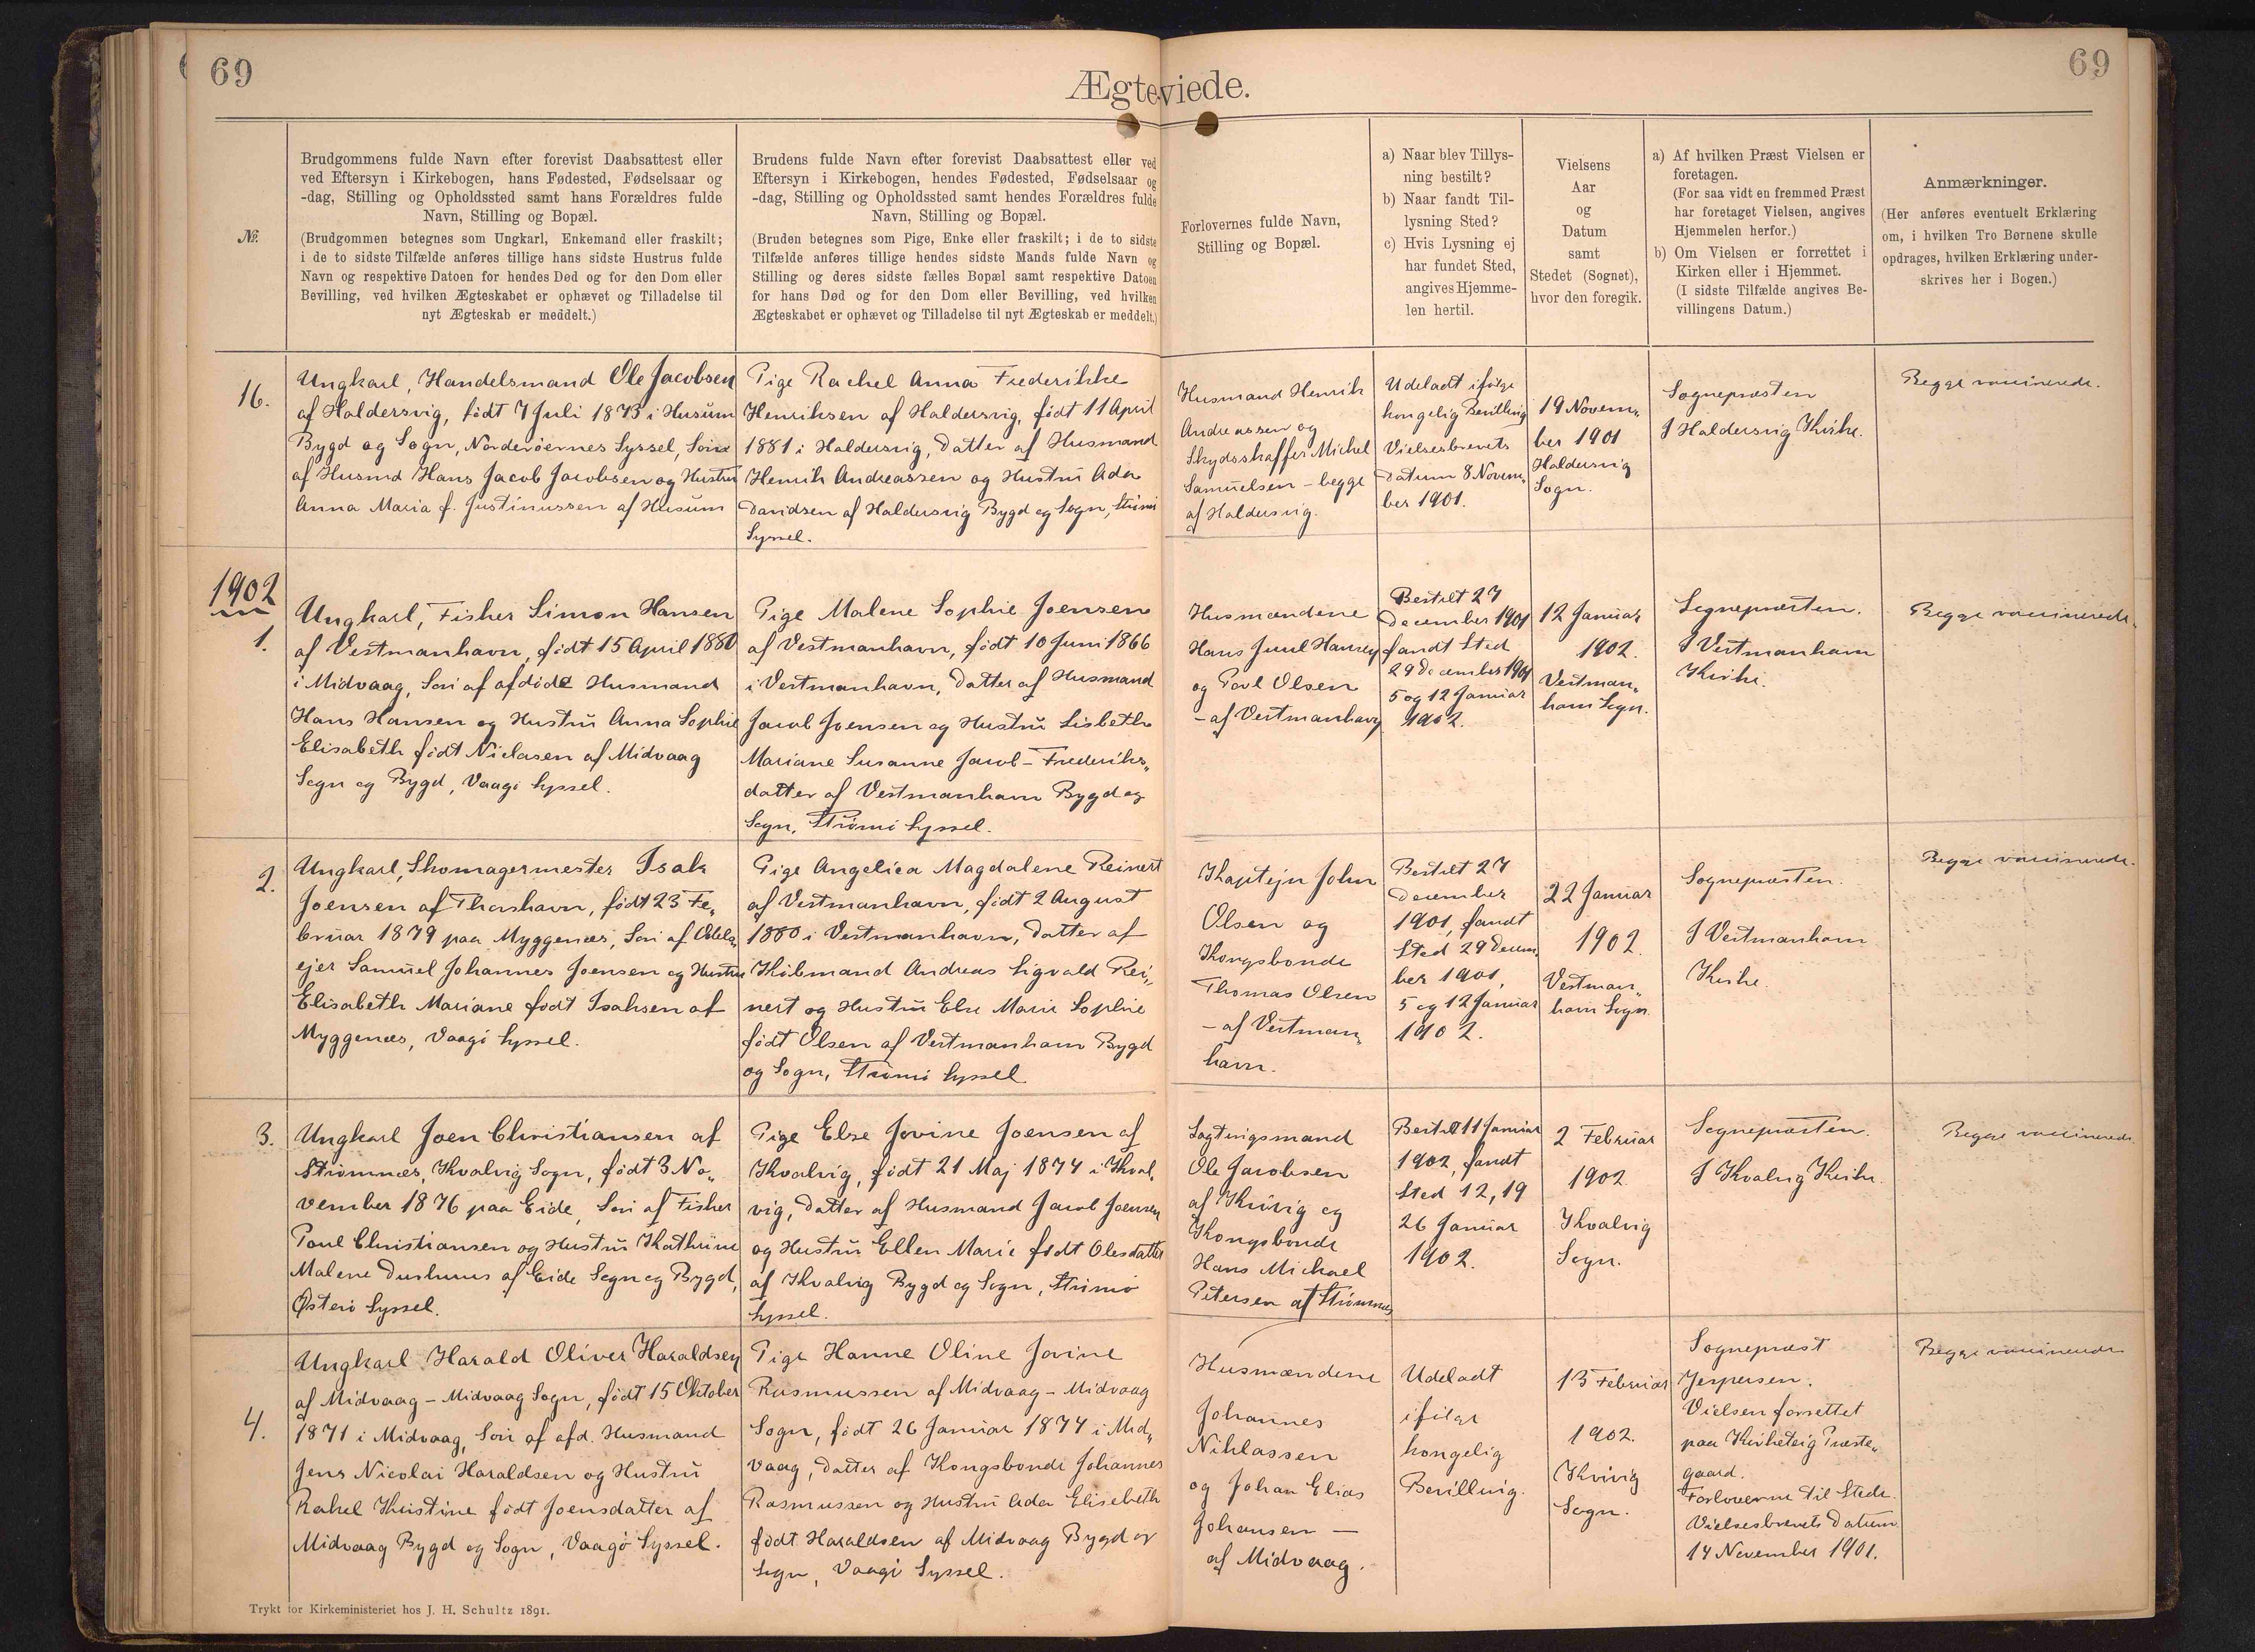 69
69
Ægteviede.
No.
Brudgommens fulde Navn efter forevist Daabsattest eller
ved Eftersyn i Kirkebogen, hans Fødested, Fødselsaar og
-dag, Stilling og Opholdssted samt hans Forældres fulde
Navn, Stilling og Bopæl.
(Brudgommen betegnes som Ungkarl, Enkemand eller fraskilt;
i de to sidste Tilfælde anføres tillige hans sidste Hustrus fulde
Navn og respektive Datoen for hendes Død og for den Dom eller
Bevilling, ved hvilken Ægteskabet er ophævet og Tilladelse til
nyt Ægteskab er meddelt.)
Brudens fulde Navn efter forevist Daabsattest eller ved
Eftersyn i Kirkebogen, hendes Fødested, Fødselsaar og
-dag, Stilling og Opholdssted samt hendes Forældres fulde
Navn, Stilling og Bopæl.
(Bruden betegnes som Pige, Enke eller fraskilt; i de to sidste
Tilfælde anføres tillige hendes sidste Mands fulde Navn og
Stilling og deres sidste fælles Bopæl samt respektive Datoen
for hans Død og for den Dom eller Bevilling, ved hvilken
Ægteskabet er ophævet og Tilladelse til nyt Ægteskab er meddelt.)
Forlovernes fulde Navn,
Stilling og Bopæl.
a) Naar blev Tillys-
ning bestilt?
b) Naar fandt Til-
lysning Sted?
c) Hvis Lysning ej
har fundet Sted,
angives Hjemme-
len hertil.
Vielsens
Aar
og
Datum
samt
Stedet (Sognet),
hvor den foregik.
a) Af hvilken Præst Vielsen er
foretagen.
(For saa vidt en fremmed Præst
har foretaget Vielsen, angives
Hjemmelen herfor.)
b) Om Vielsen er forrettet i
Kirken eller i Hjemmet.
(I sidste Tilfælde angives Be-
villingens Datum.)
Anmærkninger.
(Her anføres eventuelt Erklæring
om, i hvilken Tro Børnene skulle
opdrages, hvilken Erklæring under-
skrives her i Bogen.)
16.
Ungkarl, Handelsmand Ole Jacobsen
af Haldersvig, født 7 Juli 1873 i Husum
Bygd og Sogn, Norderöernes Syssel, Sön
af Husmd Hans Jacob Jacobsen og Hustru
Anna Maria f. Justinussen af Husum
Pige Rachel Anna Frederikke
Henriksen af Haldersvig, født 11 April
1881 i Haldersvig, Datter af Husmand
Henrik Andreassen og Hustru Ada
Davidsen af Haldersvig Bygd og Sogn, Strömö
Syssel.
Husmand Henrik
Andreassen og
Skydsskaffer Michel
Samuelsen - begge
af Haldersvig.
Udeladt ifølge
kongelig Bevilling
Vielsesbrevets
Datum 8 Novem„
ber 1901.
19 Novem„
ber 1901
Haldersvig
Sogn.
Sognepræsten
I Haldersvig Kirke.
Begge vaccinerede.
1902
1.
Ungkarl, Fisker Simon Hansen
af Vestmanhavn, født 15 April 1880
i Midvaag, Sön af afdöde Husmand
Hans Hansen og Hustru Anna Sophie
Elisabeth født Niclasen af Midvaag
Sogn og Bygd, Vaagö Syssel.
Pige Malene Sophie Joensen
af Vestmanhavn, født 10 Juni 1866
i Vestmanhavn, Datter af Husmand
Jacob Joensen og Hustru Lisbeth
Mariane Susanne Jacob-Frederiks„
datter af Vestmanhavn Bygd og
Sogn, Strömö Syssel.
Husmændene
Hans Juul Hansen
og Povl Olsen
- af Vestmanhavn
Bestilt 27
December 1901
fandt Sted
29 December 1901
5 og 12 Januar
1902.
12 Januar
1902.
Vestman„
havn Sogn.
Sognepræsten.
I Vestmanhavn
Kirke.
Begge vaccinerede.
2.
Ungkarl, Skomagermester Isak
Joensen af Thorshavn, født 23 Fe„
bruar 1879 paa Myggenæs, Sön af Odels„
ejer Samuel Johannes Joensen og Hustru
Elisabeth Mariane født Isaksen af
Myggenæs, Vaagö Syssel.
Pige Angelica Magdalene Reinert
af Vestmanhavn, født 2 August
1880 i Vestmanhavn, Datter af
Köbmand Andreas Sigvald Rei„
nert og Hustru Else Marie Sophie
født Olsen af Vestmanhavn Bygd
og Sogn, Strömö Syssel
Kaptejn John
Olsen og
Kongsbonde
Thomas Olsen
- af Vestman„
havn.
Bestilt 27
December
1901, fandt
Sted 29 Decem„
ber 1901,
5 og 12 Januar
1902.
22 Januar
1902.
Vestman„
havn Sogn.
Sognepræsten.
I Vestmanhavn
Kirke.
Begge vaccinerede.
3.
Ungkarl Joen Christiansen af
Strömnæs, Kvalvig Sogn, født 3 No„
vember 1876 paa Eide, Sön af Fisker
Poul Christiansen og Hustru Kathrine
Malene Durhuus af Eide Sogn og Bygd,
Østerö Syssel.
Pige Else Jovine Joensen af
Kvalvig, født 21 Maj 1874 i Kval„
vig, Datter af Husmand Jacob Joensen
og Hustru Ellen Marie født Olesdatter
af Kvalvig Bygd og Sogn, Strömö
Syssel.
Lagtingsmand
Ole Jacobsen
af Kvivig og
Kongsbonde
Hans Michael
Petersen af Strömnæs
Bestilt 11 Januar
1902, fandt
Sted 12, 19
26 Januar
1902.
2 Februar
1902.
Kvalvig
Sogn.
Sognepræsten.
I Kvalvig Kirke.
Begge vaccinerede.
4.
Ungkarl Harald Oliver Haraldsen
af Midvaag - Midvaag Sogn, født 15 Oktober
1871 i Midvaag, Sön af afd. Husmand
Jens Nicolai Haraldsen og Hustru
Rakel Kristine født Joensdatter af
Midvaag Bygd og Sogn, Vaagö Syssel.
Pige Hanne Oline Jovine
Rasmussen af Midvaag - Midvaag
Sogn, født 26 Januar 1874 i Mid„
vaag, Datter af Kongsbonde Johannes
Rasmussen og Hustru Ada Elisebeth
født Haraldsen af Midvaag Bygd og
Sogn, Vaagö Syssel.
Husmændene
Johannes
Niklassen
og Johan Elias
Johansen -
af Midvaag.
Udeladt
ifölge
kongelig
Bevilling.
13 Februar
1902.
Kvivig
Sogn.
Sognepræst
Jespersen.
Vielsen forrettet
paa Kirketeig Præste„
gaard.
Forloverne til Stede.
Vielsesbrevets Datum
14 November 1901.
Begge vaccinerede
Trykt for Kirkeministeriet hos J. H. Schultz 1891.